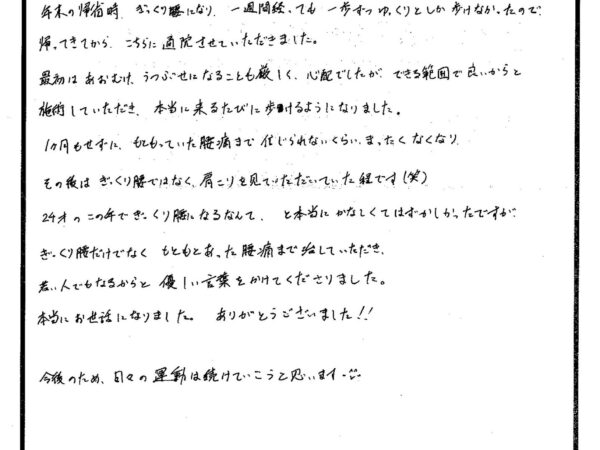 年末の帰省時、ぎっくり腰になり、一週間経っても一歩ずつゆっくりとしか歩けなかったので
帰ってきてから、こちらに通院させていただきました。
最初はあおむけ、うつぶせになることも厳しく、心配でしたが、できる範囲で良いからと
施術していただき、本当に来るたびに歩けるようになりました。
1カ月もせずに、もともっていた腰痛まで信じられないくらい、まったくなくなり、
その後はぎっくり腰ではなく、肩こりを見ていただいていた程です(笑)
24才のこの年でぎっくり腰になるなんて、と本当にかなしくてはずかしかったですが、
ぎっくり腰だけでなくもともとあった腰痛まで治していただき、
若い人でもなるからと優しい言葉をかけてくださりました。
本当にお世話になりました。ありがとうございました!!
今後のため、日々の運動は続けていこうと思います